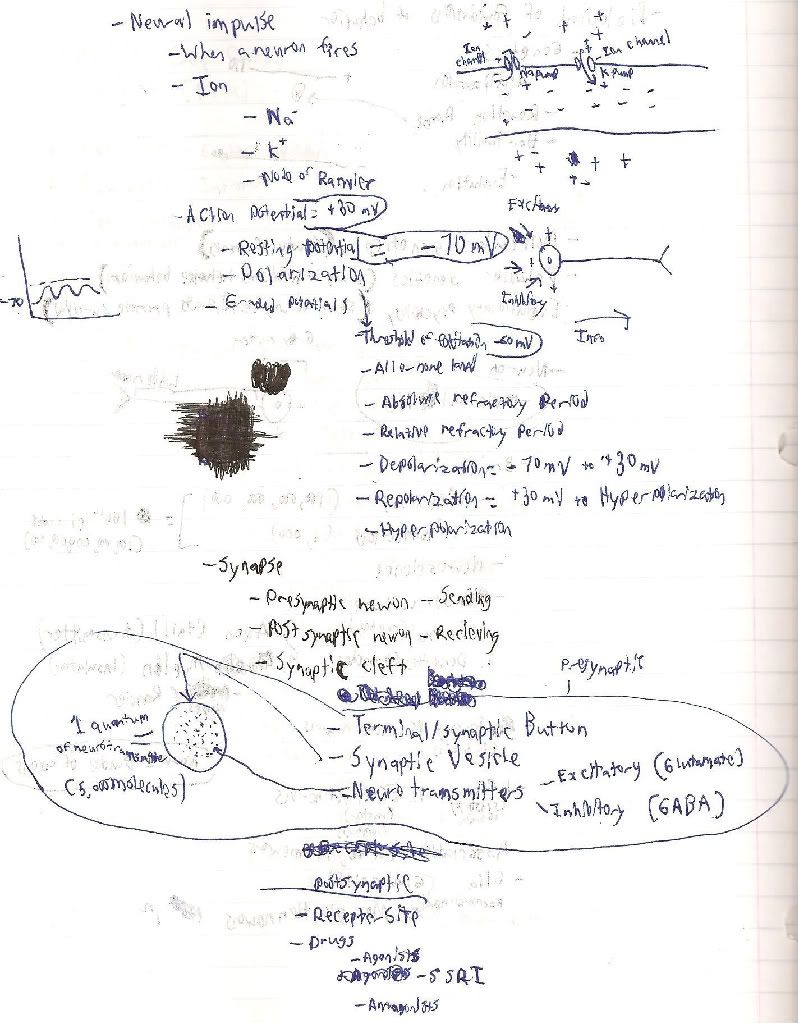 - Neural impulse
- When a neuron fires
- Ion
- Na
- K+
- Node of Ranvier
- Action Potential = +30 mV
- Resting potential = -70 mV
- Polarization
- Graded potentials
Ion channel
Na pump
Ion channel
K pump
Inhibitory
Info
-70
- Threshold of -60 mV
- All-o-none law
- Absolute refractory Period
- Relative refractory Period
- Depolarization = -70 mV to +30 mV
- Repolarization = +30 mV to Hyperpolarization
- Hyperpolarization
- Synapse
- Presynaptic neuron -- Sending
- Post synaptic neuron - Recieving
- Synaptic cleft
Presynaptic
- Terminal/synaptic Button
- Synaptic Vesicle
- Neurotransmitters
- Excitatory (Glutamate)
- Inhibitory (GABA)
1 quantum
of neurotransmitter
(5,000 molecules)
postsynaptic
- Receptor Site
- Drugs
- Agonists
- SSRI
- Antagonists